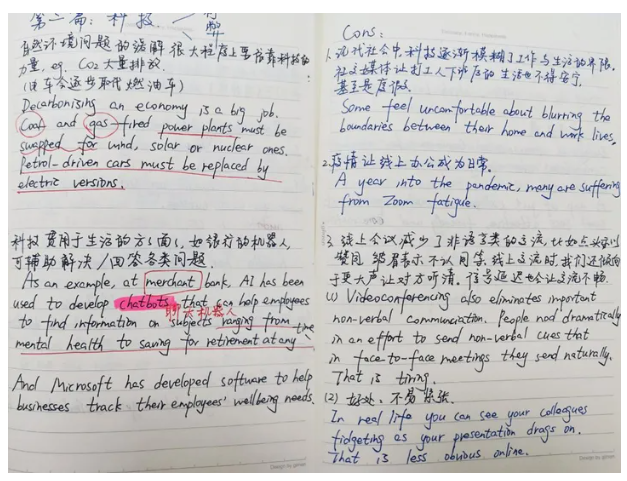 第二篇：科技.
自然环境问题的缓解很大程度上要依靠科技的
力量, eg. CO2大量排放.
(电车会逐步取代燃油车)
Decarbonising an economy is a big job.
Coal and gas-fired power plants must be
swapped for wind, solar or nuclear ones.
Petrol-driven cars must be replaced by
electric versions.
科技应用于生活的方方面面, 如银行的机器人,
可辅助解决/回答各类问题.
As an example, at merchant bank, AI has been
used to develop chatbots that can help employees
聊天机器人
to find information on subjects ranging from
mental health to saving for retirement at any time
And Microsoft has developed software to help
businesses track their employees' wellbeing needs.
Cons:
1. 现代社会中, 科技逐渐模糊了工作与生活的界限.
社交媒体让打工人下班后的生活也不得安宁,
Some feel uncomfortable about blurring the
boundaries between their home and work lives.
2. 疫情让线上办公成为日常.
A year into the pandemic, many are suffering
from Zoom fatigue.
3. 线上会议减少了非语言类的交流, 比如点头示以
赞同, 皱眉表示不认同等. 线上交流时, 我们还倾向
于更大声让对方听清. 信号延迟也会让交流不畅.
(1) Videoconferencing also eliminates important
non-verbal communciation. People nod dramatically
in an effort to send non-verbal cues that
in face-to-face meetings they send naturally.
That is tiring.
(2) 好处: 不易紧张.
In real life you can see your colleagues
fidgeting as your presentation drags on.
That is less obvious online.